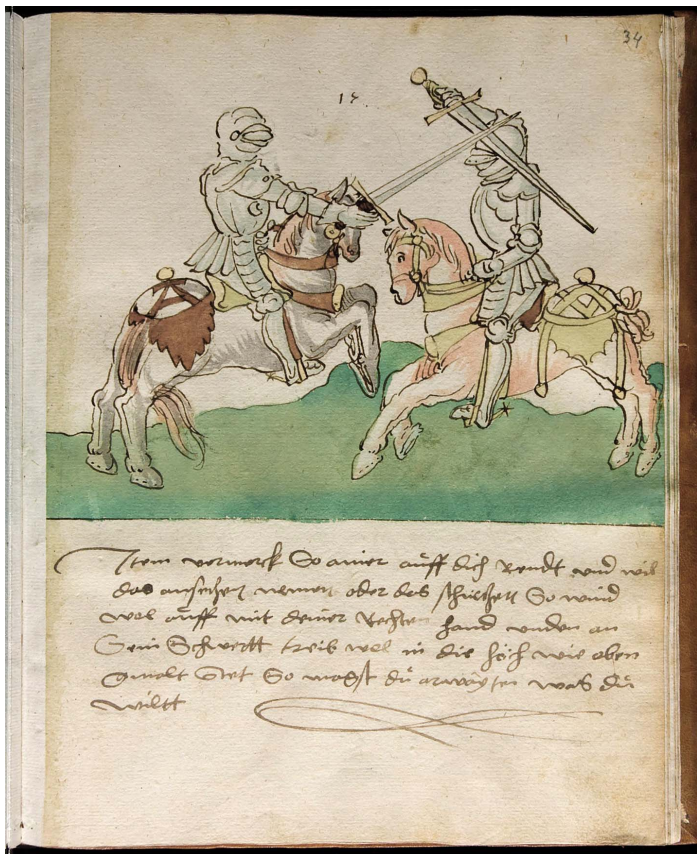 34
15.
Item vermerck So ainer auff dich Rendt und wil
das ansechen nemen oder das schiessen So wind
wol auff mit deiner Rechten hand unden an
Sein Schwertt treib wol in die höch wie oben
gmalt Stet So magst du arwayten was du
wiltt